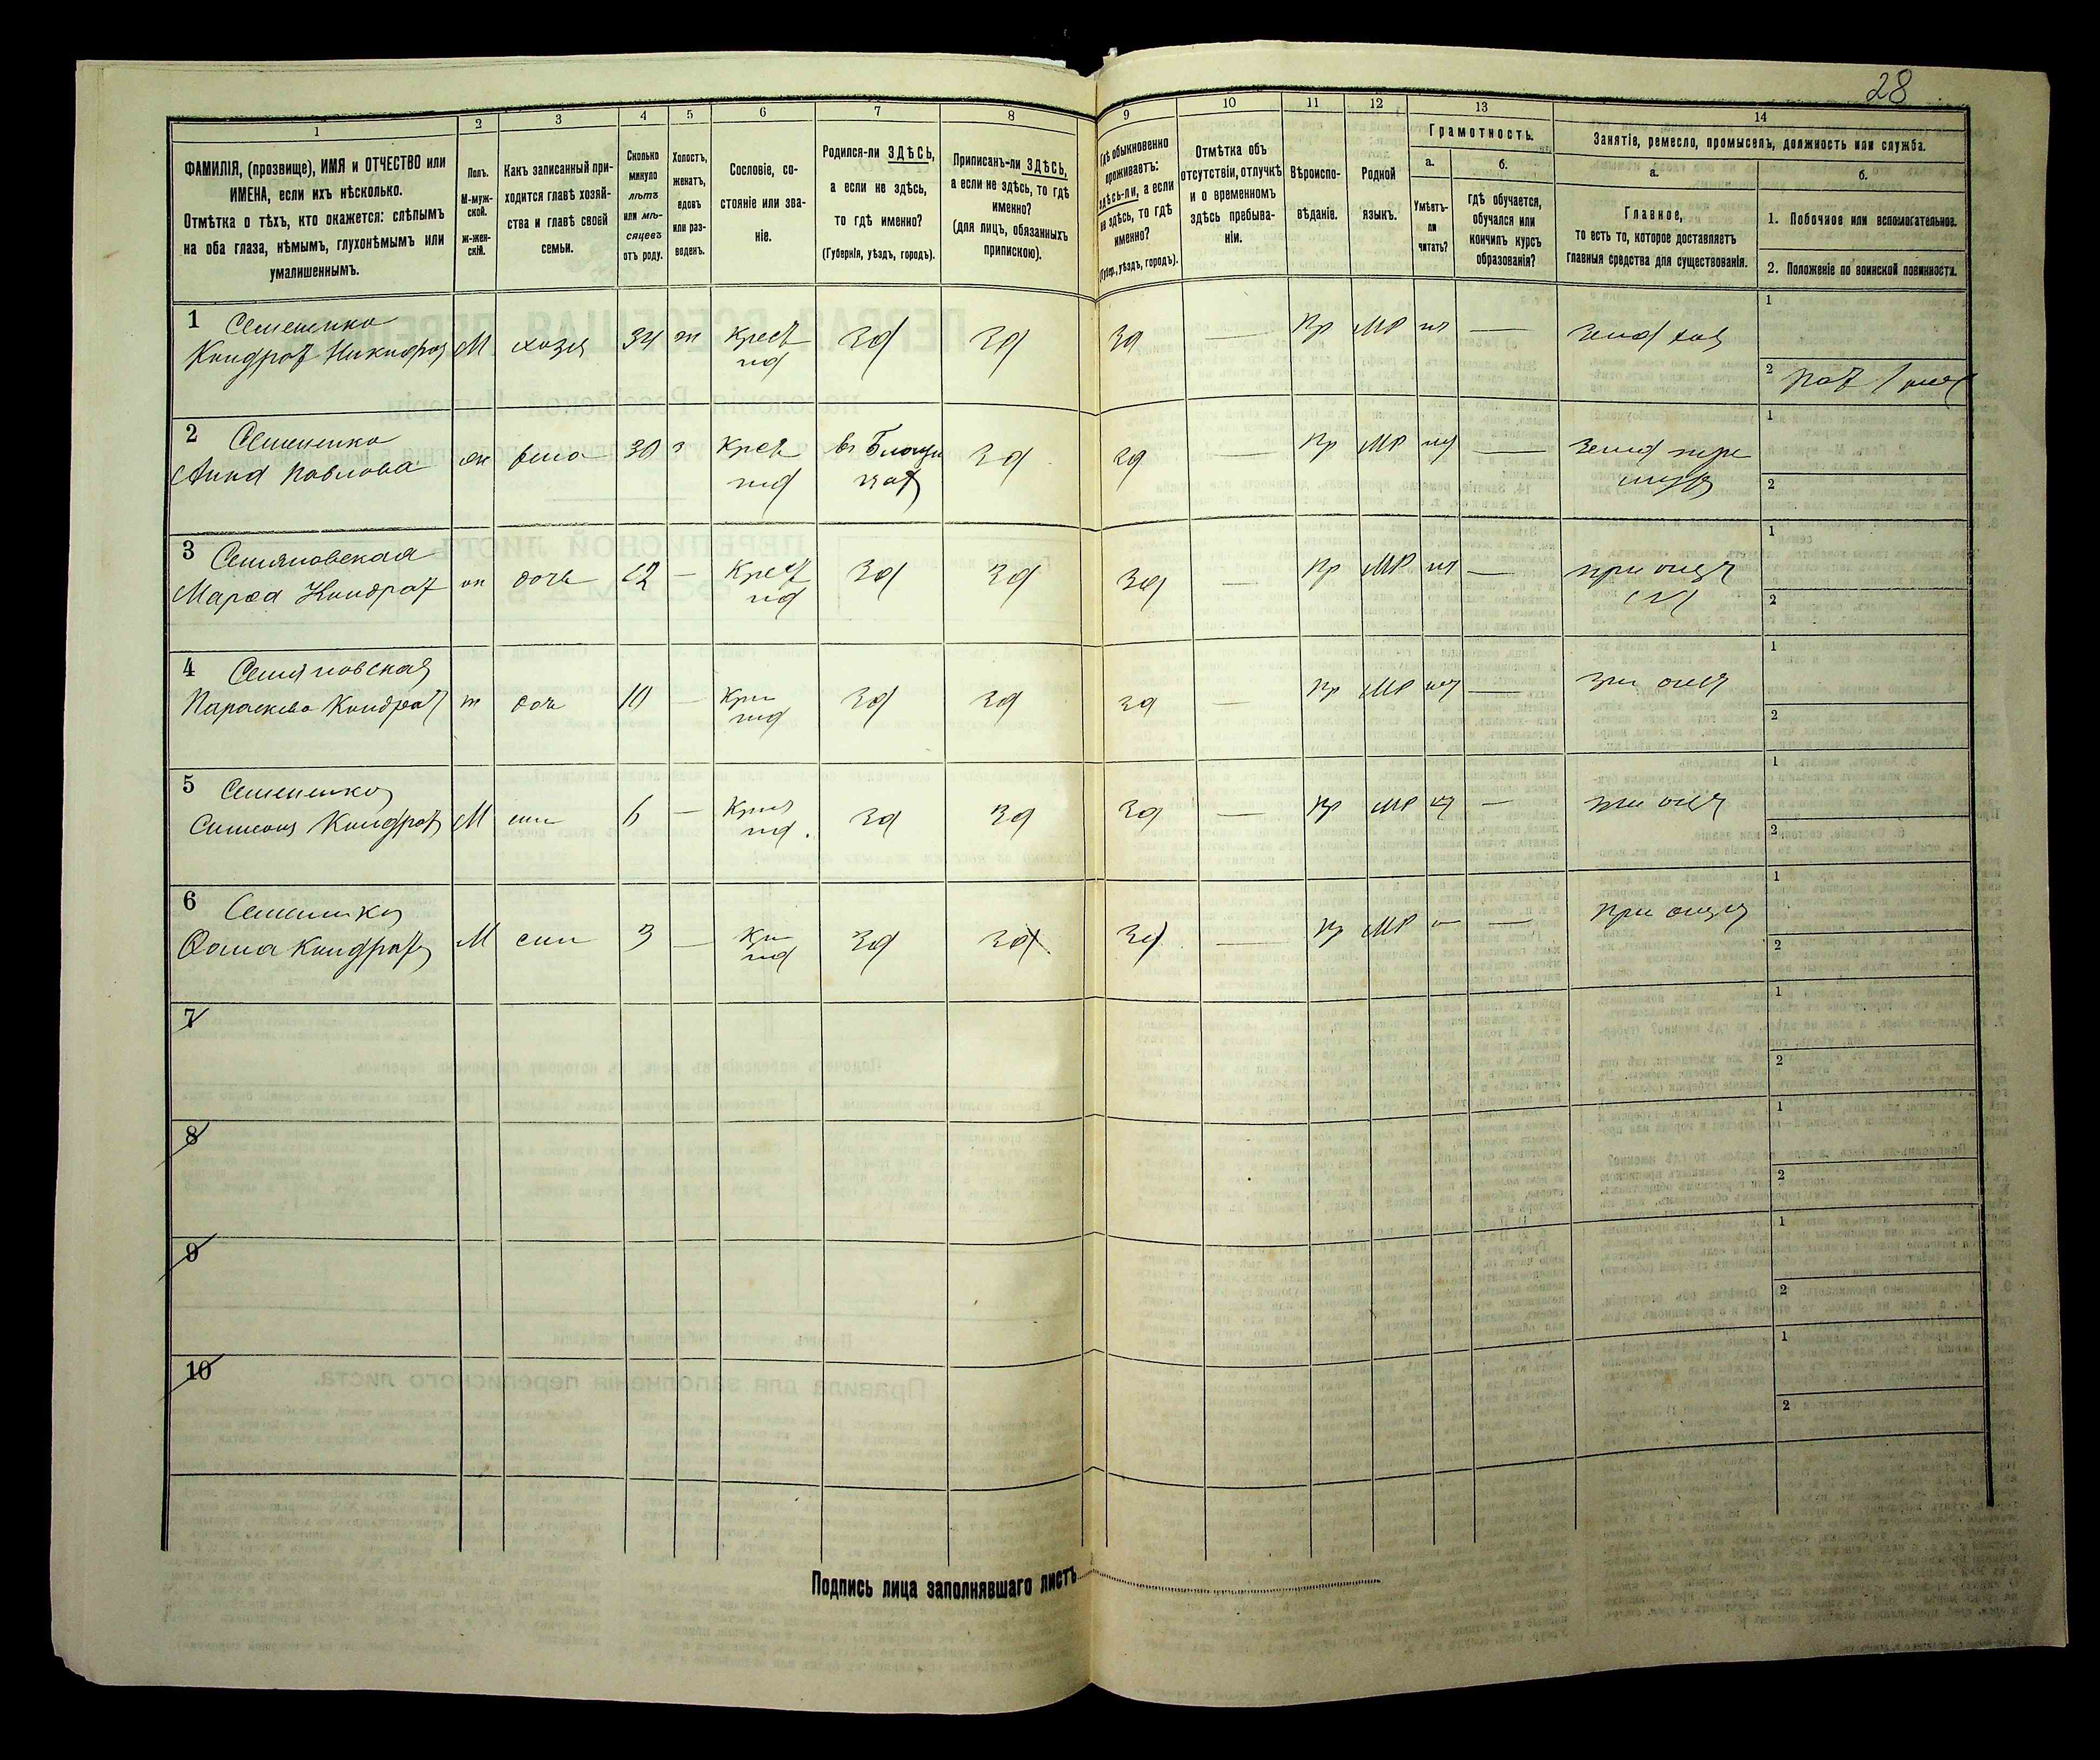 28
1
2
3
4
5
6
7
8
9
10
11
12
13
14
ФАМИЛІЯ, (прозвище), ИМЯ и ОТЧЕСТВО или
ИМЕНА, если ихъ нѣсколько.
Отмѣтка о тѣхъ, кто окажется: слѣпымъ
на оба глаза, нѣмымъ, глухонѣмымъ или
умалишеннымъ.
Полъ.
М-муж-
ской.
Ж-жен-
скій.
Какъ записанный при-
ходится главѣ хозяй-
ства и главѣ своей
семьи.
Сколько
минуло
лѣтъ
или мѣ-
сяцевъ
отъ роду.
Холостъ,
женатъ,
вдовъ
или раз-
веденъ.
Сословіе, со-
стояніе или зва-
ніе.
Родился-ли ЗДѢСЬ,
а если не здѣсь,
то гдѣ именно?
(Губернія, уѣздъ, городъ).
Приписанъ-ли ЗДѢСЬ,
а если не здѣсь, то гдѣ
именно?
(для лицъ, обязанныхъ
припискою).
Гдѣ обыкновенно
проживаетъ:
здѣсь-ли, а если
не здѣсь, то гдѣ
именно?
(Губер., уѣздъ, городъ).
Отмѣтка объ
отсутствіи, отлучкѣ
и о временномъ
здѣсь пребыва-
ніи.
Вѣроиспо-
вѣданіе.
Родной
языкъ.
Грамотность.
а.
Умѣетъ-
ли
читать?
б.
гдѣ обучается,
обучался или
кончилъ курсъ
образованія?
Занятіе, ремесло, промыселъ, должность или служба.
а.
Главное,
то есть то, которое доставляетъ
главныя средства для существованія.
б.
1. Побочное или вспомогательное.
2. Положеніе по воинской повинности.
1 Семененко
Кондрат Никифор М хозя 34 ж Крест зд зд зд — Пр МР — земл хоз
1
2
2 Семененко
Анна Павлова ж жена 30 з Крест зд зд — Пр МР —
1
2
3 Семяновская
Марѳа Кондрат ж дочь 12 — Крест зд зд зд — Пр МР — при отцѣ
1
2
4 Семяновская
Параскева Кондрат ж дочь 10 — Кре зд зд зд — Пр МР — при отцѣ
1
2
5 Семененко
Симеон Кондрат М сын 6 — Крес зд зд зд — Пр МР — при отцѣ
1
2
6 Семененко
Ѳома Кондрат М сын 3 — Кр зд зд зд — Пр МР — при отцѣ
1
2
7
1
2
8
1
2
9
1
2
10
1
2
Подпись лица заполнявшаго листъ